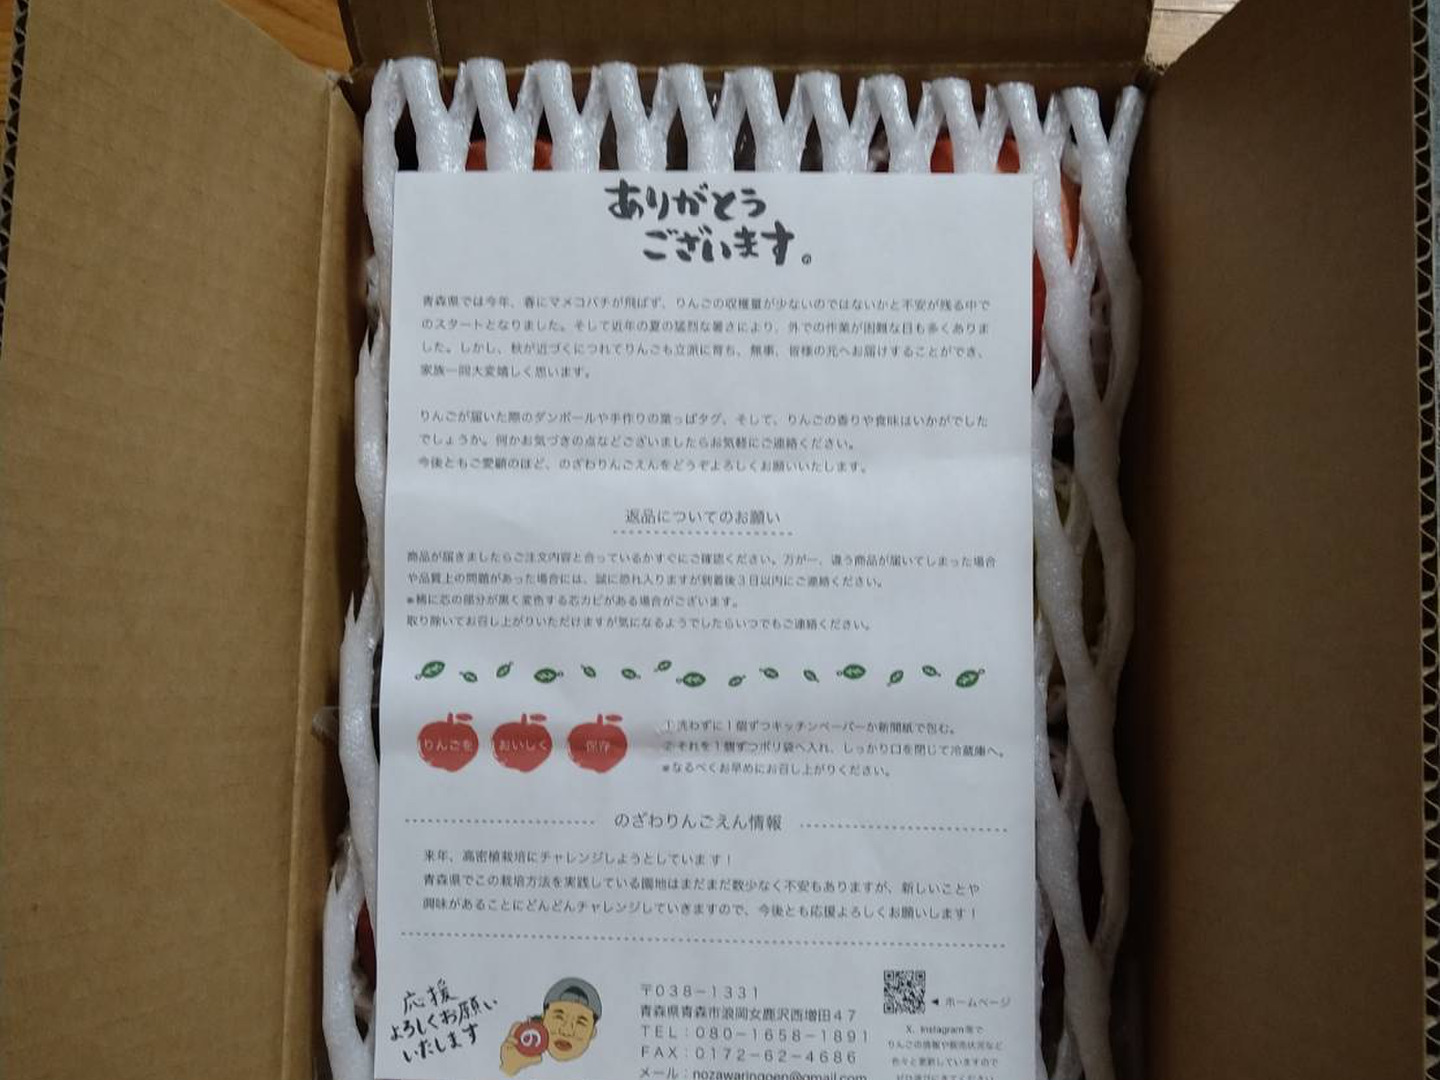 ありがとう
ございます。
青森県では今年、春にマメコバチが飛ばず、りんごの収穫量が少ないのではないかと不安が残る中で
のスタートとなりました。そして近年の夏の猛烈な暑さにより、外での作業が困難な日も多くありま
した。しかし、秋が近づくにつれてりんごも立派に育ち、無事、皆様の元へお届けすることができ、
家族一同大変嬉しく思います。
りんごが届いた際のダンボールや手作りの葉っぱタグ、そして、りんごの香りや食味はいかがでした
でしょうか。何かお気づきの点などございましたらお気軽にご連絡ください。
今後ともご愛顧のほど、のざわりんごえんをどうぞよろしくお願いいたします。
返品についてのお願い
商品が届きましたらご注文内容と合っているかすぐにご確認ください。万が一、違う商品が届いてしまった場合
や品質上の問題があった場合には、誠に恐れ入りますが到着後3日以内にご連絡ください。
※稀に芯の部分が黒く変色する芯カビがある場合がございます。
取り除いてお召し上がりいただけますが気になるようでしたらいつでもご連絡ください。
りんごを おいしく 保存
①洗わずに1個ずつキッチンペーパーか新聞紙で包む。
②それを1個ずつポリ袋へ入れ、しっかり口を閉じて冷蔵庫へ。
※なるべくお早めにお召し上がりください。
のざわりんごえん情報
来年、高密植栽培にチャレンジしようとしています！
青森県でこの栽培方法を実践している園地はまだまだ数少なく不安もありますが、新しいことや
興味があることにどんどんチャレンジしていきますので、今後とも応援よろしくお願いします！
応援
よろしくお願い
いたします
の
〒038-1331
青森県青森市浪岡女鹿沢西増田47
TEL：080-1658-1891
FAX：0172-62-4686
メール：nozawaringoen@gmail.com
◀ホームページ
X、Instagram等で
りんごの情報や販売状況など
色々と更新していますので